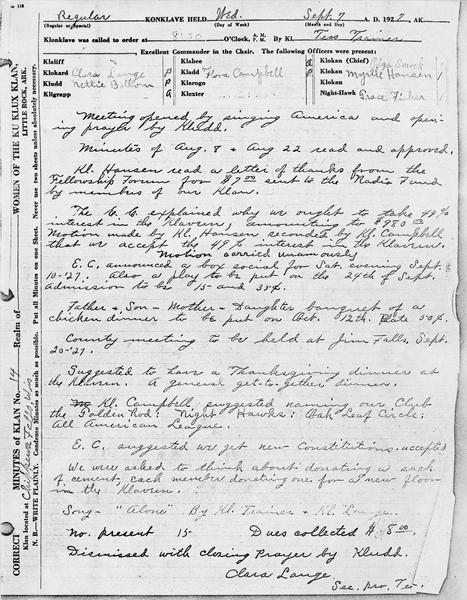 118
Regular KONKLAVE HELD Wed. Sept. 7 A. D. 1927, AK.
(Regular or Special) (Day of Week) (Month and Day)
Klonklave was called to order at 8:30 O'Clock, A. M. P. M. By Kl. Tess Trainer
Excellent Commander in the Chair. The Following Officers were present:
Klaliff Klabee a Klokan (Chief)
Klokard Clara Lange P Kladd Flora Campbell P Klokan Myrtle Hansen
Kludd Nettie P Klagaro Klokan
Kligrapp a Klexter Night-Hawk Grace Fisher
Meeting opened by singing America and open-
ing prayer by Kludd.
Minutes of Aug. 8 & Aug 22 read and approved.
Kl. Hansen read a letter of thanks from the
Fellowship Forum for $7.00 sent to the Radio Fund
by members of our Klan.
The E. C. explained why we ought to take 49%
interest in the Klavern, amounting to $980.00
Motion made by Kl. Hansen seconded by Kl. Campbell
that we accept the 49% interest in the Klavern.
Motion carried unamously
E. C. announced a box social for Sat. evening Sept.
10-27. Also a play to be put on the 24th of Sept.
Admission to be 15 and 35¢.
Father & Son - Mother & Daughter banquet of a
chicken dinner to be put on Oct. 12th. Plate 50¢.
County meeting to be held at Jim Falls, Sept.
20-27.
Suggested to have a Thanksgiving dinner at
the Klavern. A general get-to-gether dinner.
Kl. Campbell, suggested naming our Club
the Golden Rod: Night Hawks: Oak Leaf Circle:
All American League.
E. C. suggested we get new Constitutions. accepted
We were asked to think about donating a sack
of cement, each member donating one for a new floor
in the Klavern.
Song - "Alone" By Kl. Trainer & Kl. Lange.
No. present 15- Dues collected $8.00
Dismissed with closing Prayer by Kludd.
Clara Lange
Sec. Pro. Te.
CORRECT MINUTES OF KLAN No. 14 Realm of WOMEN OF THE KU KLUX KLAN,
Klan located at Chippewa Falls, Wis LITTLE ROCK, ARK.
N. B.—WRITE PLAINLY. Condense Minutes as much as possible. Put all Minutes on one Sheet. Never use two sheets unless absolutely necessary.